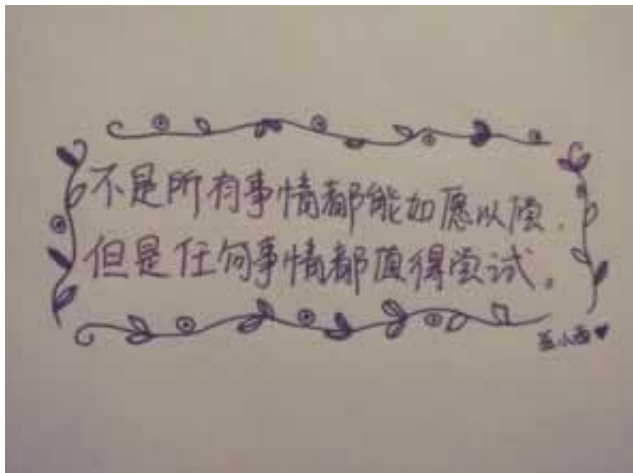 不是所有事情都能如愿以偿.
但是任何事情都值得尝试。
小西♥